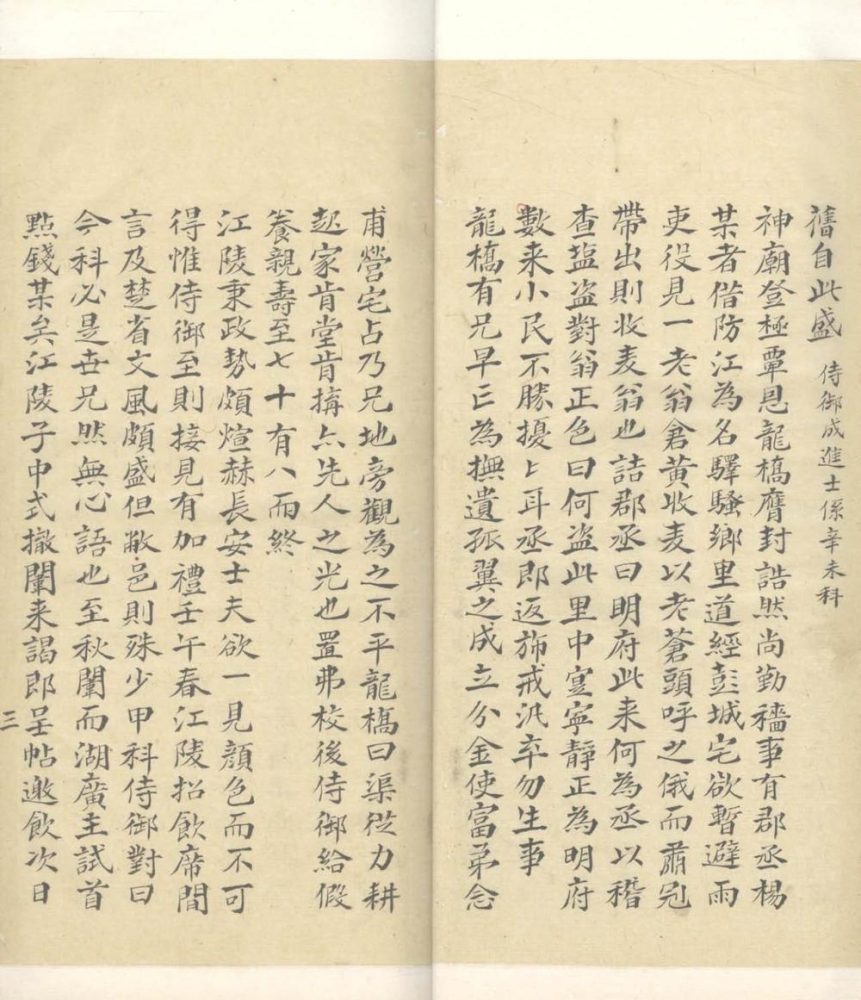 舊自此盛 侍御成進士係辛未科
神廟登極覃恩龍橋膺封誥然尚勤穡事有郡丞楊
某者借防江為名驛騷鄉里道經彭城宅欲暫避雨
吏役見一老翁倉黃收麦以老蒼頭呼之俄而肅冠
帶出則收麦翁也詰郡丞曰明府此来何為丞以稽
查塩盗對翁正色曰何盗此里中寔寧靜正為明府
數来小民不勝擾〻耳丞即返斾戒汛卒勿生事
龍橋有兄早亡為撫遺孤翼之成立分金使富弟念
甫營宅占乃兄地旁觀為之不平龍橋曰渠從力耕
起家肯堂肯搆亦先人之光也置弗校後侍御給假
養親壽至七十有八而終
江陵秉政勢頗煊赫長安士夫欲一見顏色而不可
得惟侍御至則接見有加禮壬午春江陵招飲席間
言及楚省文風頗盛但敝邑則殊少甲科侍御對曰
今科必是世兄然無心語也至秋闈而湖廣主試首
點錢某矣江陵子中式撤闈来謁郎呈帖邀飲次日
三